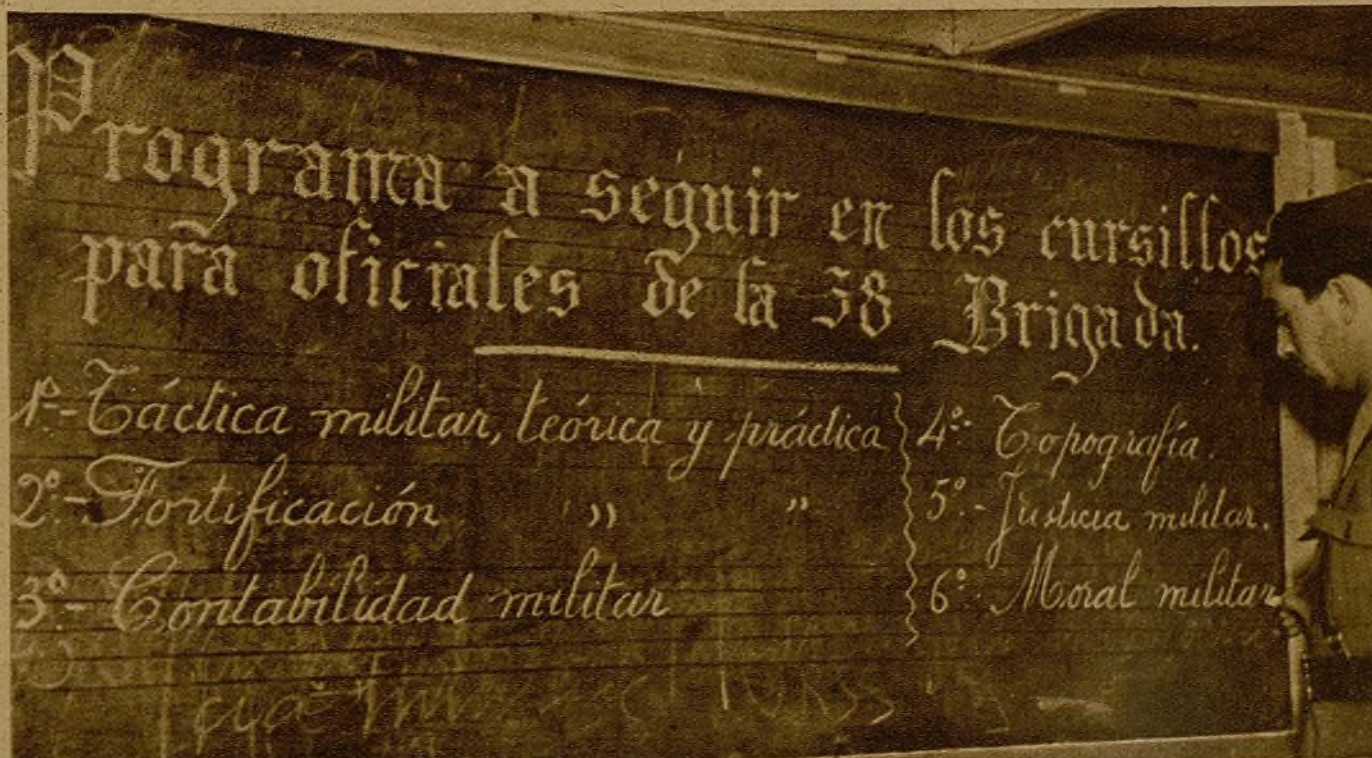 Programa a seguir en los cursillos
para oficiales de la 58 Brigada.
1º- Táctica militar, teórica y práctica
2º- Fortificación " "
3º- Contabilidad militar
4º- Topografía.
5º- Justicia militar.
6º- Moral militar